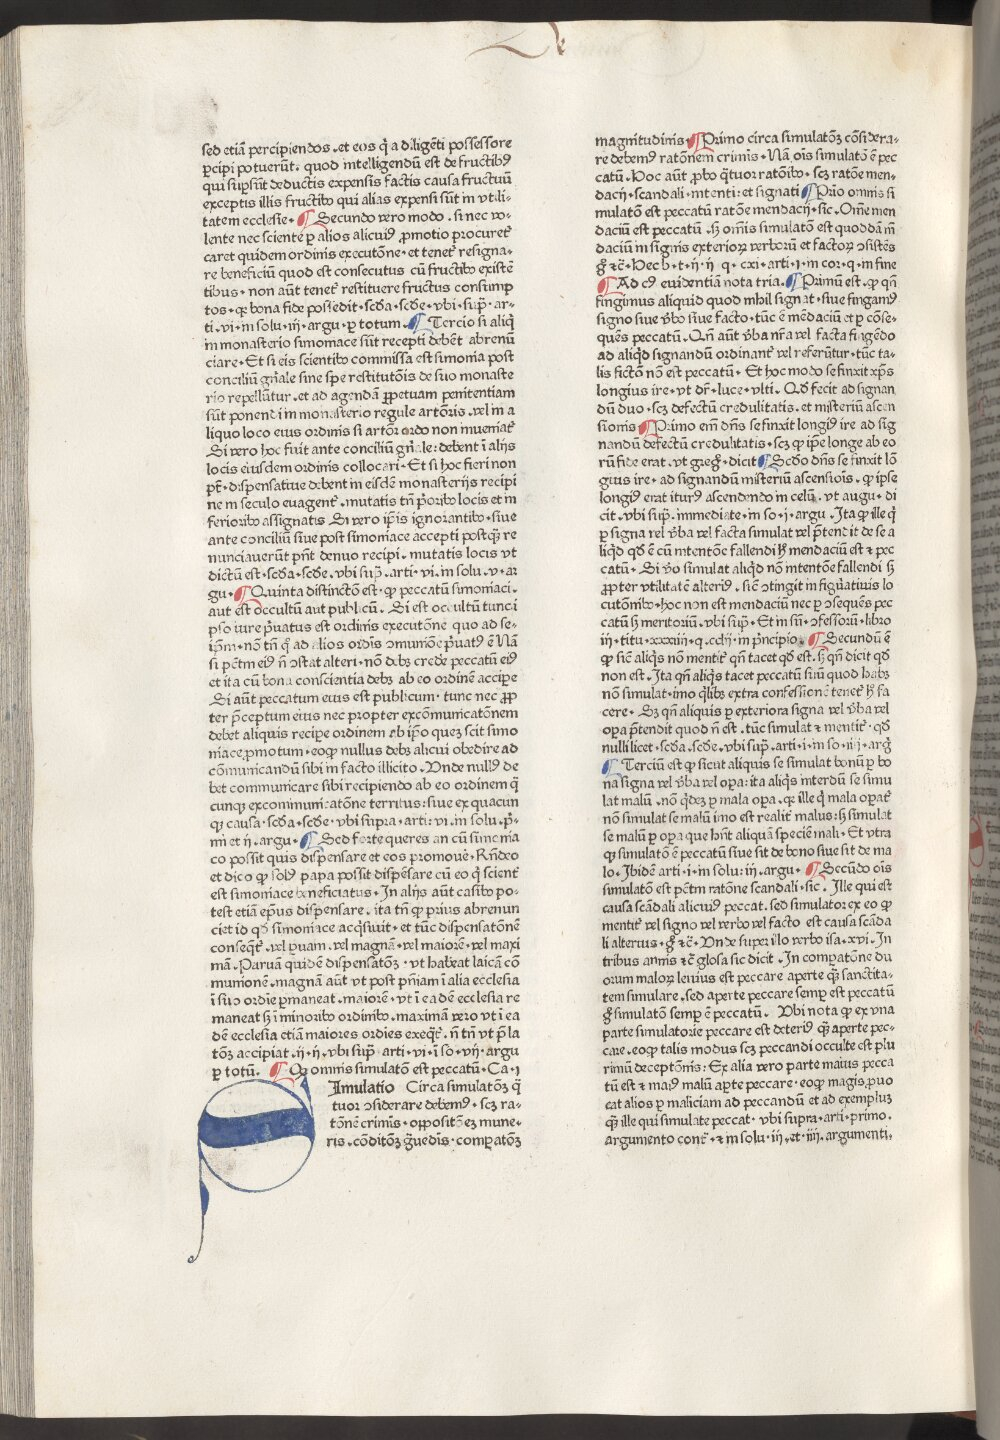 De
sed etiā percipiendos ∙ et eos q̇ a diligēti possessore
ꝑcipi potuerūt ∙ quod intelligendū est de fructibꝰ
qui suꝑsūt deductis expensis factis causa fructuū
exceptis illis fructibꝰ qui alias expensi sūt in vtili-
tatem ecclesie ∙ ¶ Secundo vero modo ∙ si nec vo-
lente nec sciente ꝑ alios alicuiꝰ ꝓmotio procuret̃
caret quidem ordinis executōne ∙ et tenet̃ resigna-
re beneficiū quod est consecutus cū fructibꝰ existē
tibus ∙ non aūt tenet̃ restituere fructus consump
tos ∙ qͥ bona fide possedit ∙ scd̄a ∙ scd̄e ∙ vbi suꝓ̄ ∙ ar-
ti ∙ vi ∙ in solu ∙ iij ∙ argu ∙ ꝑ totum ∙ ¶ Tercio si aliq̇
in monasterio simoniace sūt recepti debēt abrenū
ciare ∙ Et si eis scientibꝰ commissa est simonia post
conciliū gn̄ale sine spe restitutōis de suo monaste
rio repellūtur ∙ et ad agendā ꝑpetuam penitentiam
sūt ponendi in monasterio regule artōris ∙ vel in a
liquo loco eius ordinis si artōr ordo non inueniat̃
Si vero hoc fuit ante conciliū gn̄ale: debent ī alijs
locis eiusdem ordinis collocari ∙ Et si hoc fieri non
pt̄ ∙ dispensatiue debent in eisdē monasterijs recipi
ne in seculo euagent̃ ∙ mutatis tn̄ pͥoribꝰ locis et in
feriorībꝰ assignatis Si vero ip̄is ignorantibꝰ ∙ siue
ante conciliū siue post simoniace accepti postq̄ꝫ re
nunciauerūt pn̄t denuo recipi ∙ mutatis locis vt
dictū est ∙ scd̄a ∙ scd̄e ∙ vbi suꝓ̄ ∙ arti ∙ vi ∙ in solu ∙ v ∙ ar
gu ∙ ¶ Quinta distinctōn est ∙ ꝙ peccatū simoniaci ∙
aut est occultū aut publicū ∙ Si est occultū tunc i
pso iure pͥuatus est ordinis executōne quo ad se-
ip̄m ∙ nō tn̄ q̇ ad alios ordīs ꝯmuniōe pͥuatꝰ ē Nā
si pc̄tm̄ eiꝰ nō ꝯstat alteri ∙ nō dꝫ crede peccatū eiꝰ
et ita cū bona conscientia debꝫ ab eo ordinē accipe
Si aūt peccatum eius est publicum ∙ tunc nec ꝓp
ter p̄ceptum eius nec propter excōmunicatōnem
debet aliquis recipe ordinem ab ip̄o quez scit simo
niace ꝓmotum ∙ eoqꝫ nullus debꝫ alicui obedire ad
cōmunicandū sibi in facto illicito ∙ Vnde nullꝰ de
bet communicare sibi recipiendo ab eo ordinem q̄
cunqꝫ excommunicatōne territus: siue ex quacun
qꝫ causa ∙ scd̄a ∙ scd̄e ∙ vbi supra ∙ arti: vi ∙ in solu ∙ pͥ-
mi et ij ∙ argu ∙ ¶ Sed forte queres an cū simonia
co possit quis dispensare et eos promoue ∙ Rn̄deo
et dico ꝙ solꝰ papa possit dispēsare cū eo q̇ scient̃
est simoniace beneficiatus ∙ In alijs aūt casibꝰ po-
test etiā ep̄us dispensare ∙ ita tn̄ ꝙ prius abrenun
ciet id qꝰ simoniace acq̇siuit ∙ et tūc dispensatōnē
conseqt̃ ∙ vel ꝑuam ∙ vel magnā ∙ vel maiorē ∙ vel maxi
mā ∙ Paruā quidē dispensatōꝫ ∙ vt habeat laicā cō
munionē ∙ magnā aūt vt post pn̄iam ī alia ecclesia
ī suo ordīe ꝑmaneat ∙ maiorē ∙ vt ī eadē ecclesia re
maneat ſꝫ ī minoribꝰ ordinibꝰ ∙ maximā vero vt ī ea
dē ecclesia etiā maiores ordīes exeqt̃ ∙ n̄ tn̄ vt p̄la
tōꝫ accipiat ∙ ij ∙ ij ∙ vbi suꝓ̄ ∙ arti ∙ vi ∙ ī so ∙ vij ∙ argu
ꝑ totū ∙ ¶ Qꝙ omnis simulatō est peccatū ∙ Ca ∙ i
SImulatio Circa simulatōꝫ q̄
tuor ꝯsiderare debemꝰ ∙ scꝫ ra-
tōnē crimīs ∙ oppositōeꝫ mune-
ris ∙ cōditōꝫ gͣuedīs ∙ comꝑatōꝫ
magnitudinis ∙ ¶ Primo circa simulatōꝫ cōsidera-
re debemꝰ ratōnem criminis ∙ Nā oīs simulatō ē pec
catū ∙ Hoc aūt ꝓbo q̄tuor ratōibꝰ ∙ scꝫ ratōe men-
dacij ∙ scandali ∙ intenti: et signati ¶ Prīo omnis si
mulatō est peccatū ratōne mendacij ∙ sic ∙ Om̄e men
daciū est peccatū ∙ ſꝫ om̄is simulatō est quoddā m̄
daciū in signis exterioꝝ verborū et factoꝝ ꝯsistēs
g̊ ⁊c̄ ∙ Hec b ∙ t ∙ ij ∙ ij ∙ q ∙ cxi ∙ arti ∙ i ∙ in cor ∙ q ∙ in fine
¶ Ad cꝰ euidentiā nota tria ∙ ¶ Primū est ∙ ꝙ qn̄
fingimus aliquid quod nihil signat ∙ siue fingamꝰ
signo siue v̄bo siue facto ∙ tūc ē mendaciū et ꝑ cōse-
quēs peccatū ∙ Qn̄ aūt v̄ba nr̄a vel facta fingēdo
ad aliqͥd signandū ordinant̃ vel referūtur ∙ tūc ta-
lis fictō nō est peccatū ∙ Et hoc modo se finxit xp̄s
longius ire ∙ vt dr̄ ∙ luce ∙ vlti ∙ Qꝰ fecit ad signan
dū duo ∙ scꝫ defectū credulitatis ∙ et misteriū ascen
sionis ¶ Primo em̄ dn̄s se finxit longiꝰ ire ad sig
nandū defectū credulitatis ∙ scꝫ ꝙ ip̄e longe ab eo
rū fide erat ∙ vt greg̊ ∙ dicit ¶ Scd̄o dn̄s se finxit lō
gius ire ∙ ad signandū misteriū ascensiois ∙ ꝙ ipse
longiꝰ erat iturꝰ ascendendo in celū ∙ vt augu ∙ di
cit ∙ vbi suꝓ̄ ∙ immediate ∙ in so ∙ i ∙ argu ∙ Ita ꝙ ille q̇
ꝑ signa vel v̄ba vel facta simulat vel p̄tendit de se a
liqͥd qꝰ ē cū intentōe fallendi hͦ mendaciū est ⁊ pec
catū ∙ Si v̊o simulat aliqͥd nō intentōe fallendi ſꝫ
ꝓpter vtilitatē alteriꝰ ∙ sic̄ ꝯtingit in figuratiuis lo
cutōnibꝰ ∙ hoc non est mendaciū nec ꝑ ꝯsequēs pec
catū ſꝫ meritoriū ∙ vbi suꝓ̄ ∙ Et in sū ∙ ꝯfessorū ∙ libro
iij ∙ titu ∙ xxxiiij ∙ q ∙ cclij ∙ in pͥncipio ∙ ¶ Secundū ē
ꝙ sic̄ aliq̇s nō mentit̃ qn̄ tacet qꝰ est ∙ ſꝫ qn̄ dicit qꝰ
non est ∙ Ita qn̄ aliq̇s tacet peccatū suū quod habꝫ
nō simulat ∙ imo q̇libꝫ extra confessionē tenet̃ hͦ fa
cere ∙ Sꝫ qn̄ aliquis ꝑ exteriora signa vel v̄ba vel
oꝑa p̄tendit quod n̄ est ∙ tūc simulat ⁊ mentit̃ ∙ qꝰ
nulli licet ∙ scd̄a ∙ scd̄e ∙ vbi suꝓ̄ ∙ arti ∙ i ∙ in so ∙ iij ∙ arg̊
¶ Terciū est ꝙ sicut aliquis se simulat bonū ꝑ bo
na signa vel v̄ba vel oꝑa: ita aliq̇s interdū se simu
lat malū ∙ nō q̇deꝫ ꝑ mala oꝑa ∙ qꝛ ille q̇ mala oꝑat̃
nō simulat se malū imo est realit̃ malus: ſꝫ simulat
se malū ꝑ oꝑa que hn̄t aliquā speciē mali ∙ Et vtra
qꝫ simulatō ē peccatū siue sit de bono siue sit de ma
lo ∙ Ibidē arti ∙ i ∙ in solu: iij ∙ argu ∙ ¶ Secūdo oīs
simulatō est pc̄tm̄ ratōne scandali ∙ sic ∙ Ille qui est
causa scādali alicuiꝰ peccat ∙ sed simulator ex eo ꝙ
mentit̃ vel signo vel verbo vel facto est causa scāda
li alterius ∙ g̊ ⁊c̄ ∙ Vnde super ilo verbo isa ∙ xvi ∙ In
tribus annis ⁊c̄ glosa sic dicit ∙ In comꝑatōne du
orum maloꝝ leuius est peccare aperte q̄ꝫ sanctita-
tem simulare ∙ sed aperte peccare semꝑ est peccatū
g̊ simulatō semꝑ ē peccatū ∙ Vbi nota ꝙ ex vna
parte simulatorie peccare est deteriꝰ q̄ꝫ aperte pec-
care ∙ eoqꝫ talis modus scꝫ peccandi occulte est plu
rimū deceptōnis: Ex alia vero parte maius pecca
tū est ⁊ maiꝰ malū aꝑte peccare ∙ eoqꝫ magis ꝓuo
cat alios ꝑ maliciam ad peccandū et ad exemplum
q̄ꝫ ille qui simulate peccat ∙ vbi supra ∙ arti ∙ primo ∙
argumento cont̃ ∙ ⁊ in solu ∙ iij ∙ et ∙ iiij ∙ argumenti ∙